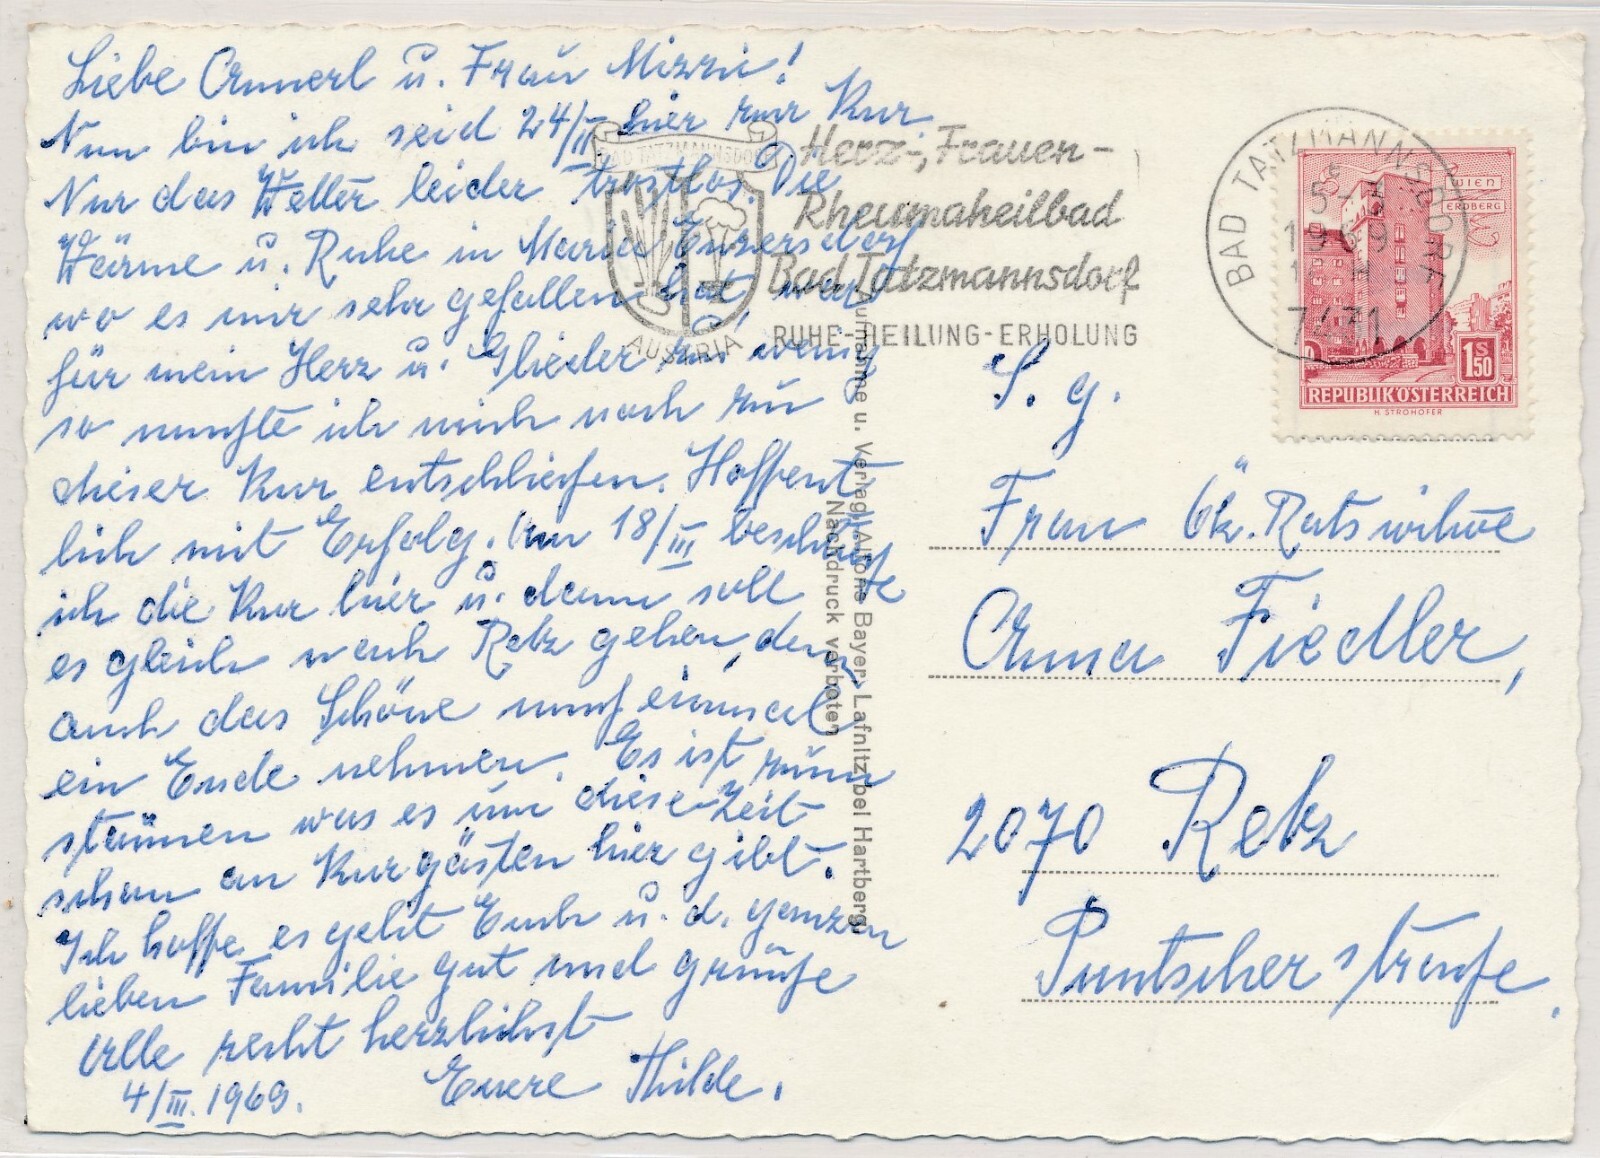 Liebe Annerl u. Frau Mizzi!
Nun bin ich seid 24/II hier zur Kur.
Nur das Wetter leider trostlos. Die
Wärme u. Ruhe in Maria Enzersdorf
wo es mir sehr gefallen hat, war
für mein Herz u. Glieder zu wenig
so mußte ich mich noch zu
dieser Kur entschließen. Hoffent
lich mit Erfolg. Am 18/III beschließe
ich die Kur hier u. dann soll
es gleich nach Retz gehen, denn
auch das Schöne muß einmal
ein Ende nehmen. Es ist zum
staunen was es um diese Zeit
schon an Kurgästen hier gibt.
Ich hoffe es geht Euch u. d. ganzen
lieben Familie gut und grüße
Alle recht herzlichst
4/III. 1969. Euere Thilde.
BAD TATZMANNSDORF
AUSTRIA
Herz-, Frauen-
Rheumaheilbad
Bad Tatzmannsdorf
RUHE-HEILUNG-ERHOLUNG
BAD TATZMANNSDORF
5-3
1969
7431
WIEN
ERDBERG
1S50
REPUBLIK ÖSTERREICH
H. STROHOFER
Aufnahme u. Verlag Alfons Bayer, Lafnitz bei Hartberg
Nachdruck verboten
S. g.
Frau Ök. Ratswitwe
Anna Fiedler,
2070 Retz
Puntscherstraße.